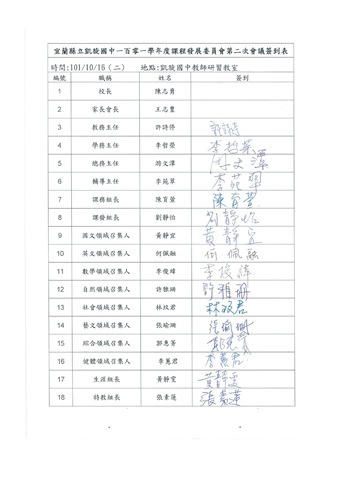 宜蘭縣立凱旋國中一百零一學年度課程發展委員會第二次會議簽到表
時間:101/10/16（二） 地點:凱旋國中教師研習教室
編號 職稱 姓名 簽到
1 校長 陳志勇
2 家長會長 王志豐
3 教務主任 許詩停
4 學務主任 李哲榮 李哲榮
5 總務主任 游文漳 游文漳
6 輔導主任 李苑翠 李苑翠
7 課務組長 陳育萱 陳育萱
8 課發組長 劉靜怡 劉靜怡
9 國文領域召集人 黃靜宜 黃靜宜
10 英文領域召集人 何佩融 何佩融
11 數學領域召集人 李俊緯 李俊緯
12 自然領域召集人 許雅琳 許雅
13 社會領域召集人 林玫君 林玫君
14 藝文領域召集人 張瑜珊 張瑜珊
15 綜合領域召集人 郭惠菁
16 健體領域召集人 李蕙君 李蕙君
17 生涯組長 黃靜雯 黃靜雯
18 特教組長 張素蓮 張素蓮